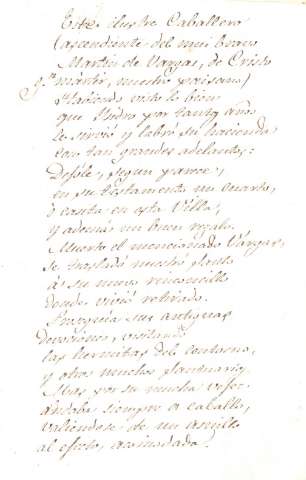 Este ilustre Caballero
(ascendiente del muy bravo
Martin de Vargas, de Cristo
martir, nuestro paisano)
Habiendo visto lo bien
que Ysidro por tantos años
le sirvió y labró su hacienda
con tan grandes adelantos:
Dejóle, segun parece,
en su testamento un cuarto,
ó casita en esta Villa,
y además un buen regalo.
Muerto el mencionado Vargas,
se trasladó nuestro Santo
á su nuevo rinconcillo
donde vivió retirado.
Proseguia sus antiguas
devociones, visitando
las hermitas del contorno,
y otros muchos Santuarios.
Mas por su mucha vejez
andaba siempre á caballo,
valiendose de un asnillo
al efecto, acomodado.